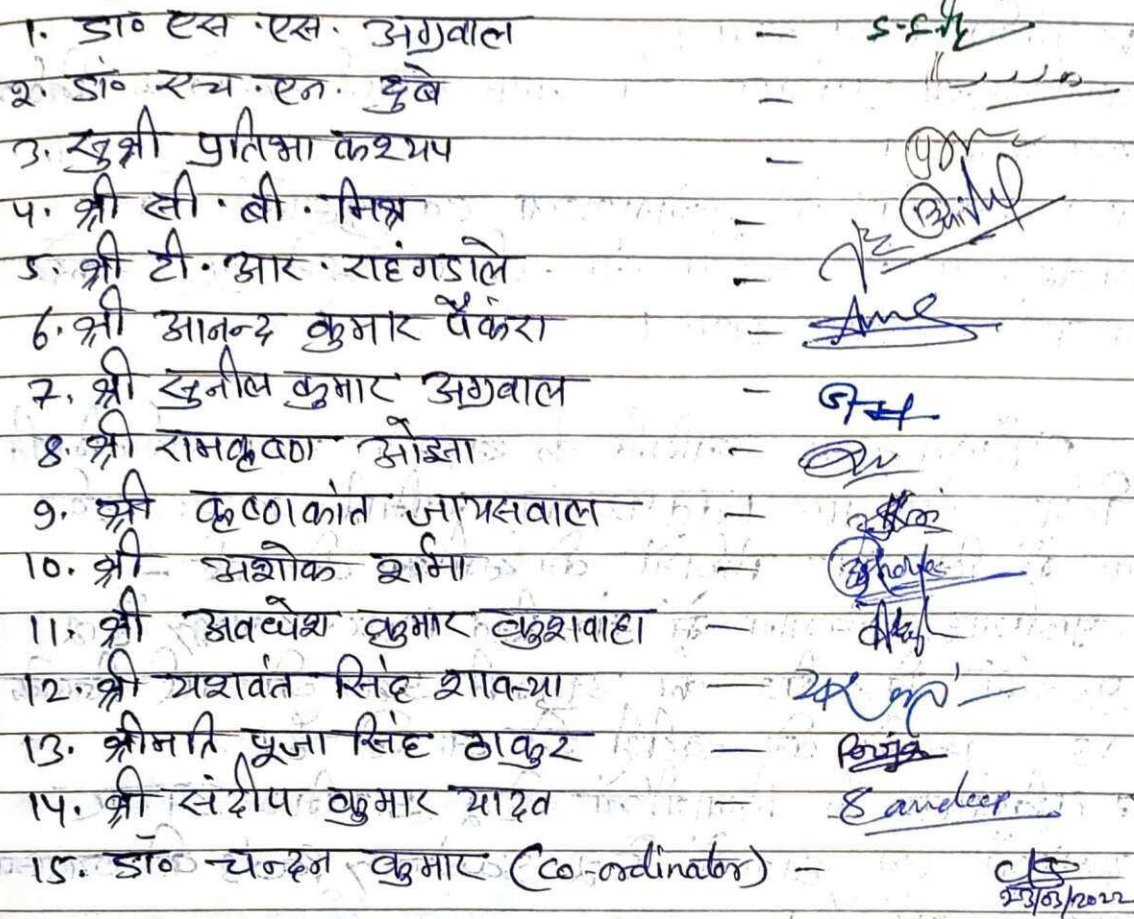 1. डा० एस.एस. अग्रवाल -
2. डॉ० एच.एन. दुबे -
3. सुश्री प्रतिभा कश्यप -
4. श्री सी.बी. मिश्र -
5. श्री टी.आर. राहंगडाले -
6. श्री आनन्द कुमार पैंकरा -
7. श्री सुनील कुमार अग्रवाल -
8. श्री रामकृष्ण ओझा -
9. श्री कृष्णकांत जायसवाल -
10. श्री अशोक शर्मा -
11. श्री अवधेश कुमार कुशवाहा -
12. श्री यशवंत सिंह शाक्या -
13. श्रीमति पूजा सिंह ठाकुर - Pooja
14. श्री संदीप कुमार यादव - Sandeep
15. डॉ० चन्दन कुमार (co-ordinator) -
23/03/2022